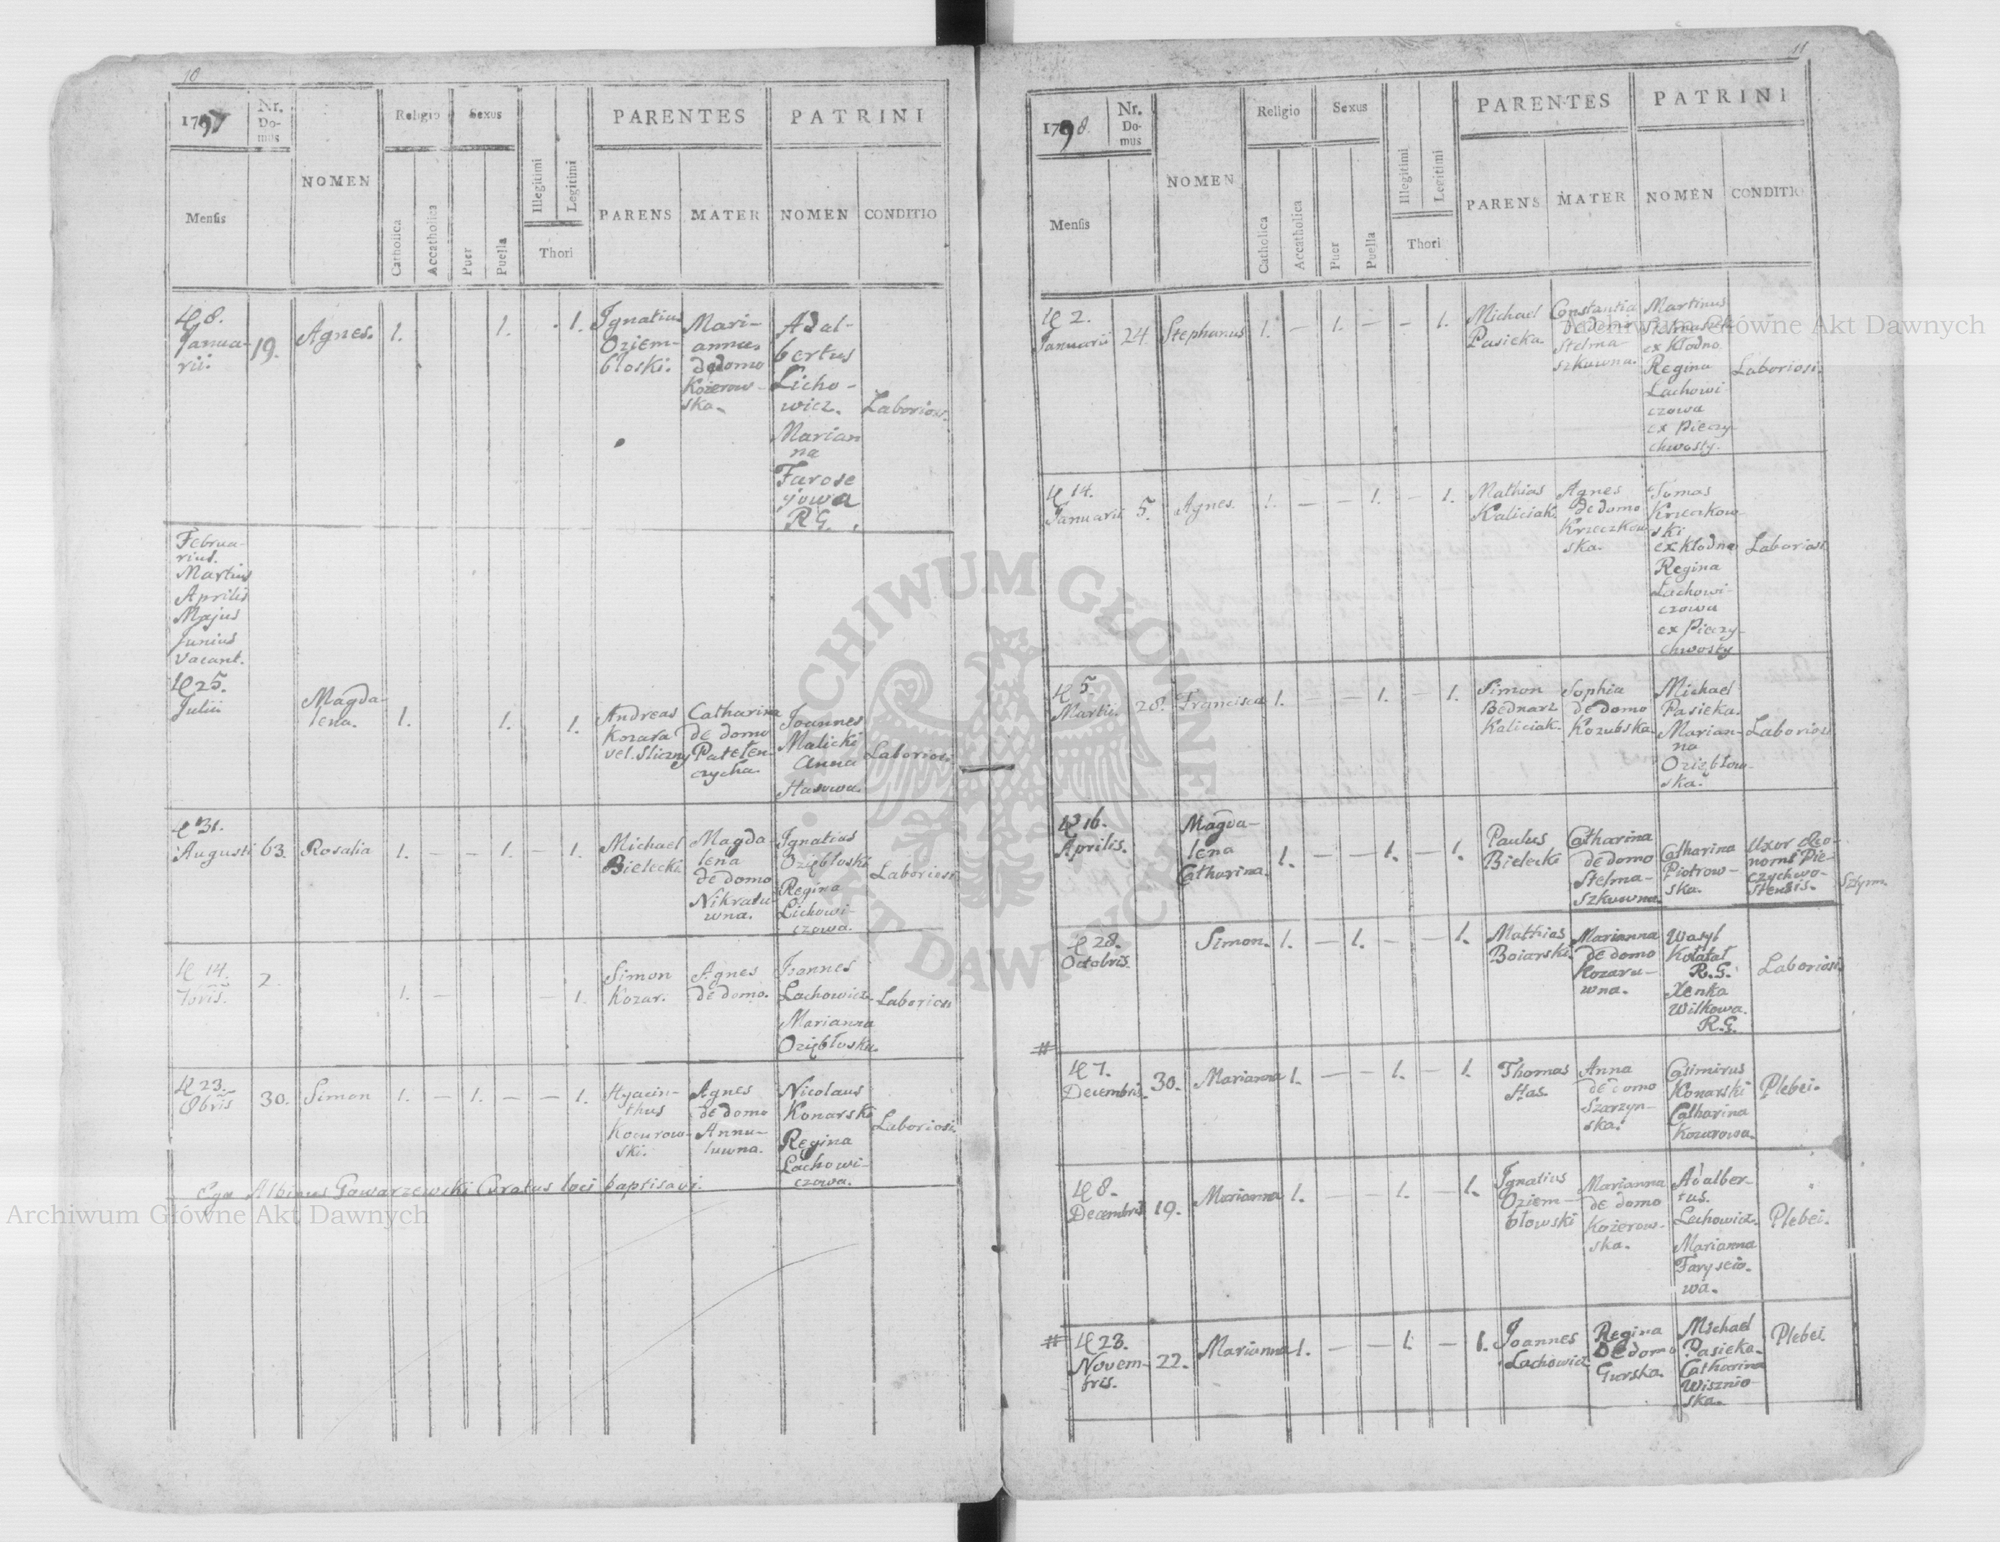 10
1797
Nr.
Do-
mus
NOMEN
Religio
Sexus
PARENTES
PATRINI
Mensis
Catholica
Accatholica
Puer
Puella
Illegitimi
Legitimi
Thori
PARENS
MATER
NOMEN
CONDITIO
8.
Janua-
rii.
19.
Agnes.
1.
1.
1.
Ignatius
Oziem-
bloski.
Mari-
anna
de domo
Kożerow-
ska.
Adal-
bertus
Licho-
wicz.
Marian
na
Farose
jowa
R.G.
Laboriosi
Februa-
rius.
Martius
Aprilis
Majus
Junius
vacant.
25.
Julii
Magda-
lena.
1.
1.
1.
Andreas
Kozara
vel Sliczny
Catharina
de domo
Patelen-
czycha.
Joannes
Malicki
Anna
Hasowa.
Laboriosi
31.
Augusti
63.
Rosalia
1. — — 1. — 1.
Michael
Bielecki
Magda
lena
de domo
Nikratu-
wna.
Ignatius
Oziębloski
Regina
Lichowi-
czowa.
Laboriosi
14.
7bris.
2.
1. — — 1.
Simon
Kozar.
Agnes
de domo.
Joannes
Lachowicz.
Marianna
Oziębłoska.
Laboriosi
23.
8bris
30.
Simon
1. — 1. — — 1.
Hyacin-
thus
Kocurow-
ski.
Agnes
de domo
Annu-
luwna.
Nicolaus
Konarski
Regina
Lachowi-
czowa.
Laboriosi.
Ego Albinus Gawarzewski Curatus loci baptisavi.
11
1798.
Nr.
Do-
mus
NOMEN
Religio
Sexus
PARENTES
PATRINI
Mensis
Catholica
Accatholica
Puer
Puella
Illegitimi
Legitimi
Thori
PARENS
MATER
NOMEN
CONDITIO
2.
Januarii
24.
Stephanus
1. — 1. — — 1.
Michael
Pasieka
Constantia
de domo
Stelma-
szkuwna.
Martinus
Stelmaszek
ex Kłodno
Regina
Lachowi
czowa
ex Pieczy-
chwosty.
Laboriosi.
14.
Januarii
5.
Agnes.
1. — — 1. — 1.
Mathias
Kaliciak.
Agnes
de domo
Krzeczkow-
ska.
Tomas
Krzeczkow-
ski
ex Kłodno
Regina
Lachowi-
czowa
ex Pieczy-
chwosty
Laboriosi
5.
Martii.
28.
Francisca
1. — — 1. — 1.
Simon
Bednarz
Kaliciak.
Sophia
de domo
Kozubska.
Michael
Pasieka.
Marian-
na
Oziębłow-
ska.
Laboriosi
16.
Aprilis.
Magda-
lena
Catharina.
1. — — 1. — 1.
Paulus
Bielecki
Catharina
de domo
Stelma-
szkuwna.
Catharina
Piotrow-
ska.
Uxor Oeco-
nomi Pie-
czychwo-
stensis.
28.
Octobris.
Simon.
1. — 1. — — 1.
Mathias
Boiarski
Marianna
de domo
Kozaru-
wna.
Wasyl
Kołatał
R.G.
Xenka
Wilkowa.
R.G.
Laboriosi.
#
7.
Decembris.
30.
Marianna
1. — — 1. — 1.
Thomas
Has.
Anna
de domo
Szarzyn-
ska.
Casimirus
Konarski
Catharina
Kozarowa.
Plebei.
8.
Decembris
19.
Marianna
1. — — 1. — 1.
Ignatius
Oziem-
błowski
Marianna
de domo
Kożerow-
ska.
Adalber-
tus.
Lechowicz.
Marianna
Faryseio-
wa.
Plebei.
#
23.
Novem-
bris.
22.
Marianna
1. — — 1. — 1.
Joannes
Lachowicz
Regina
De domo
Gurska.
Michael
Pasieka.
Catharina
Wisznio-
ska.
Plebei
Archiwum Główne Akt Dawnych
Archiwum Główne Akt Dawnych
ARCHIWUM GŁÓWNE AKT DAWNYCH